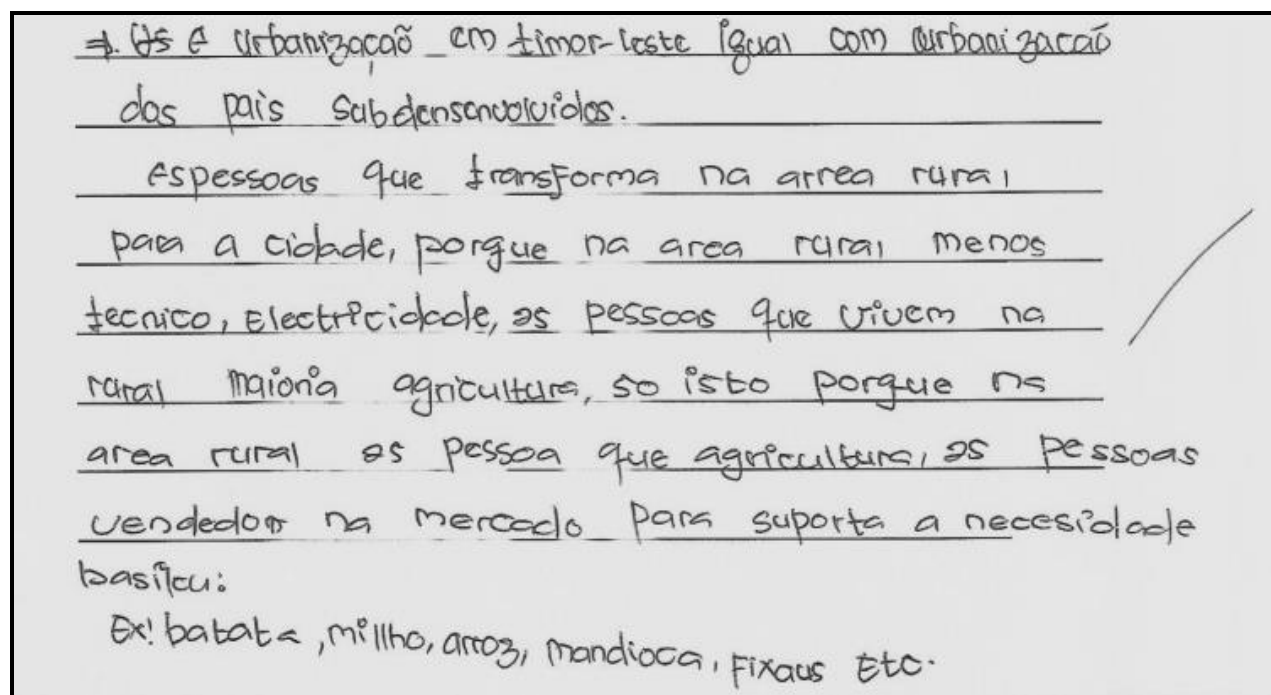 ⇒. Os e urbanizaçaõ em timor-leste igual com urbanizacaõ
dos pais subdensenvolvidos.
espessoas que transforma na arrea rural
para a cidade, porque na area rural menos
tecnico, electricidade, as pessoas que vivem na
rural maioria agricultura, so isto porque na
area rural as pessoa que agricultura, as pessoas
vendedor na mercado para suporta a necesidade
basiku:
Ex: batata, millho, arroz, mandioca, Fixaus Etc.